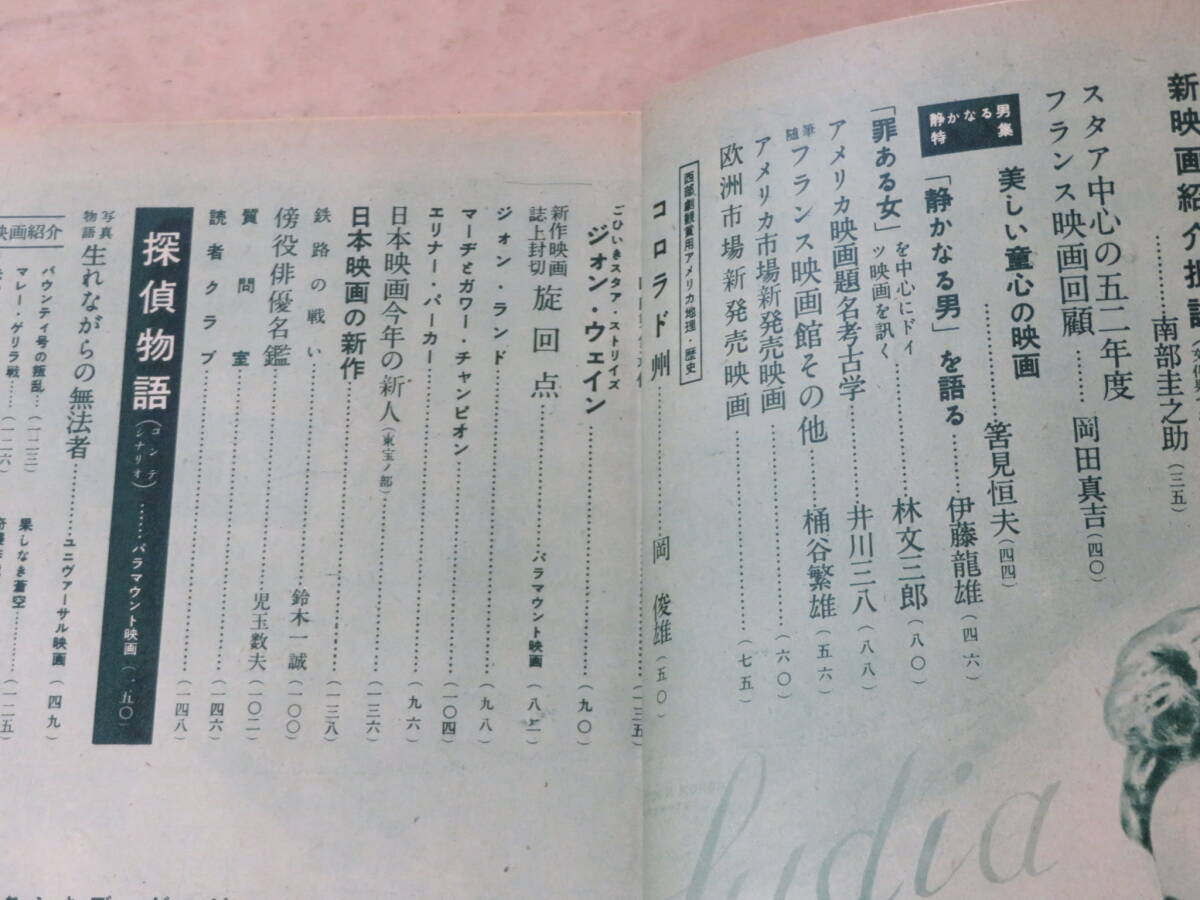 新映画紹介批評……南部圭之助(三五)
スタア中心の五二年度
フランス映画回顧……岡田真吉(四〇)
静かなる男
特集
美しい童心の映画……筈見恒夫(四四)
「静かなる男」を語る……伊藤龍雄(四六)
「罪ある女」を中心にドイツ映画を訊く……林文三郎(八〇)
アメリカ映画題名考古学……井川三八(八八)
随筆 フランス映画館その他……桶谷繁雄(五六)
アメリカ市場新発売映画……(六〇)
欧洲市場新発売映画……(七五)
西部劇観賞用アメリカ地理・歴史
コロラド州……岡俊雄(五〇)
(一三五)
ごひいきスタア・ストリイズ
ジォン・ウェイン……(九〇)
新作映画誌上封切 旋回点……パラマウント映画(八二)
ジォン・ランド……(九八)
マーヂとガワー・チャンピオン……(一〇四)
エリナー・パーカー……(九六)
日本映画今年の新人(東宝ノ部)……(一三六)
日本映画の新作……(一三八)
鉄路の戦い……鈴木一誠(一〇〇)
傍役俳優名鑑……児玉数夫(一〇二)
質問室……(一四六)
読者クラブ……(一四八)
探偵物語(コンテシナリオ)……パラマウント映画(一五〇)
写真物語 生れながらの無法者……ユニヴァーサル映画(四九)
映画紹介
バウンティ号の叛乱……(一二三)
マレー・ゲリラ戦……(一二六)
果しなき蒼空……(一二五)
lydia